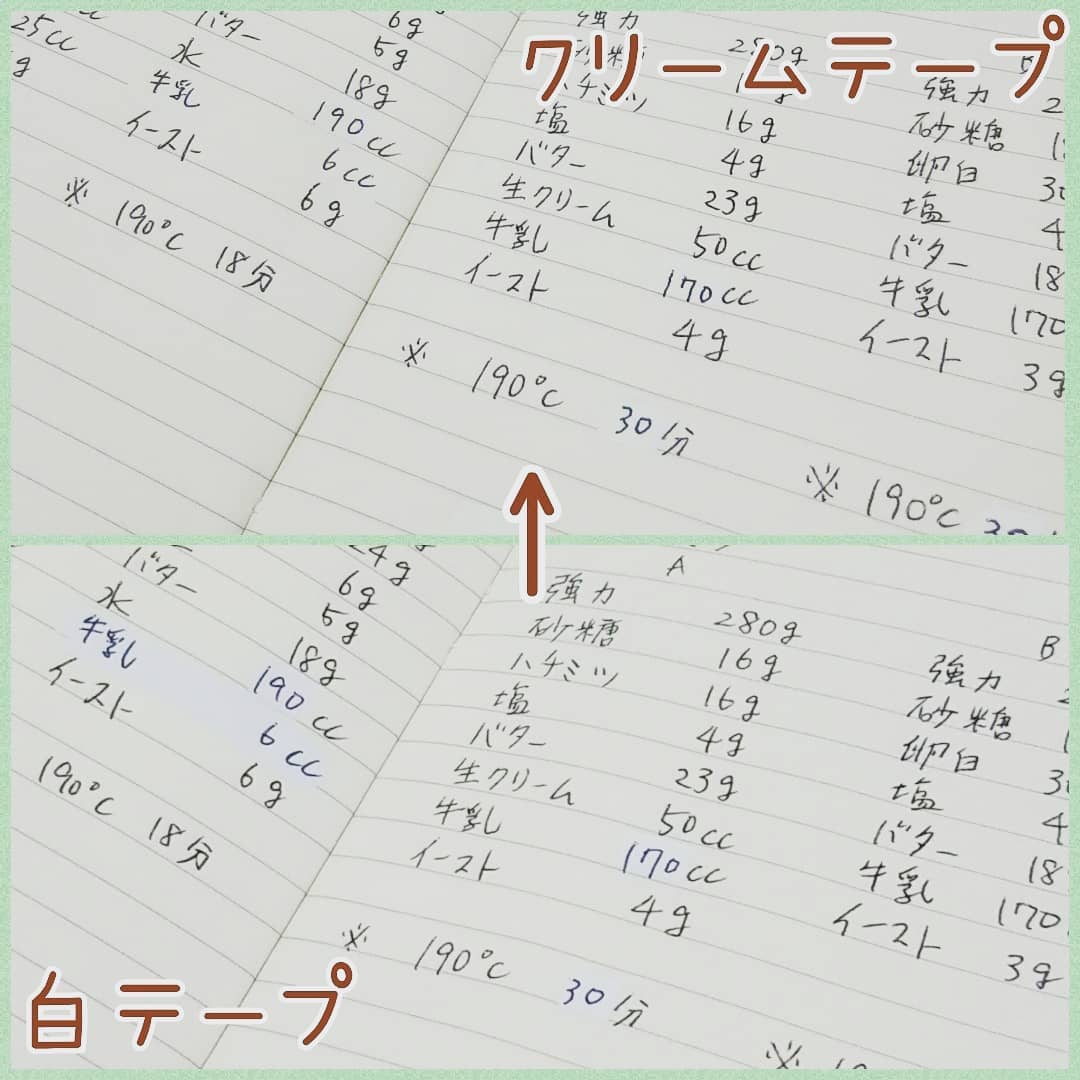 クリームテープ
25cc
g
バター
水
牛乳
イースト
6g
5g
18g
190cc
6cc
6g
※ 190℃ 18分
強力
砂糖
ハチミツ 16g
塩 4g
バター 23g
生クリーム 50cc
牛乳 170cc
イースト 4g
※ 190℃ 30分
強力 2
砂糖 1
卵白 30
塩 4
バター 18
牛乳 170
イースト 3g
※ 190℃
バター
水
牛乳
イースト
24g
6g
5g
18g
190cc
6cc
6g
190℃ 18分
A
強力 280g
砂糖 16g
ハチミツ 16g
塩 4g
バター 23g
生クリーム 50cc
牛乳 170cc
イースト 4g
※ 190℃ 30分
B
強力
砂糖
卵白 3
塩 4
バター 18
牛乳 170
イースト 3g
※
白テープ